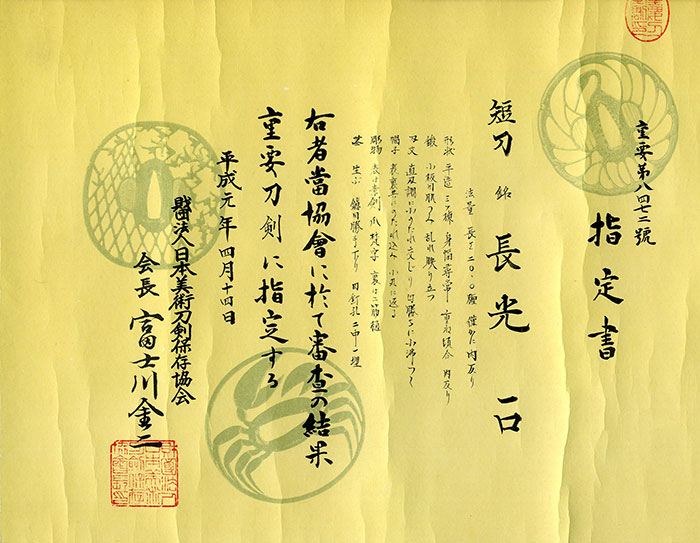 重要第八四七二號
指定書
短刀 銘 長光 一口
法量 長さ二〇・〇糎 僅かに内反り
形状 平造 三ツ棟 身幅尋常 重ね頃合 内反り
鍛 小板目肌つみ 乱れ映り立つ
刃文 直刃調に小のたれ交じり 匂勝ちに小沸つく
帽子 表裏共にのたれ込み 小丸に返る
彫物 表は素剣 爪 梵字 裏は二筋樋
茎 生ぶ 鑢目勝手下り 目釘孔二中一埋
右者當協會に於て審査の結果
重要刀剣に指定する
平成元年四月十四日
財団法人日本美術刀剣保存協会
会長 富士川金二